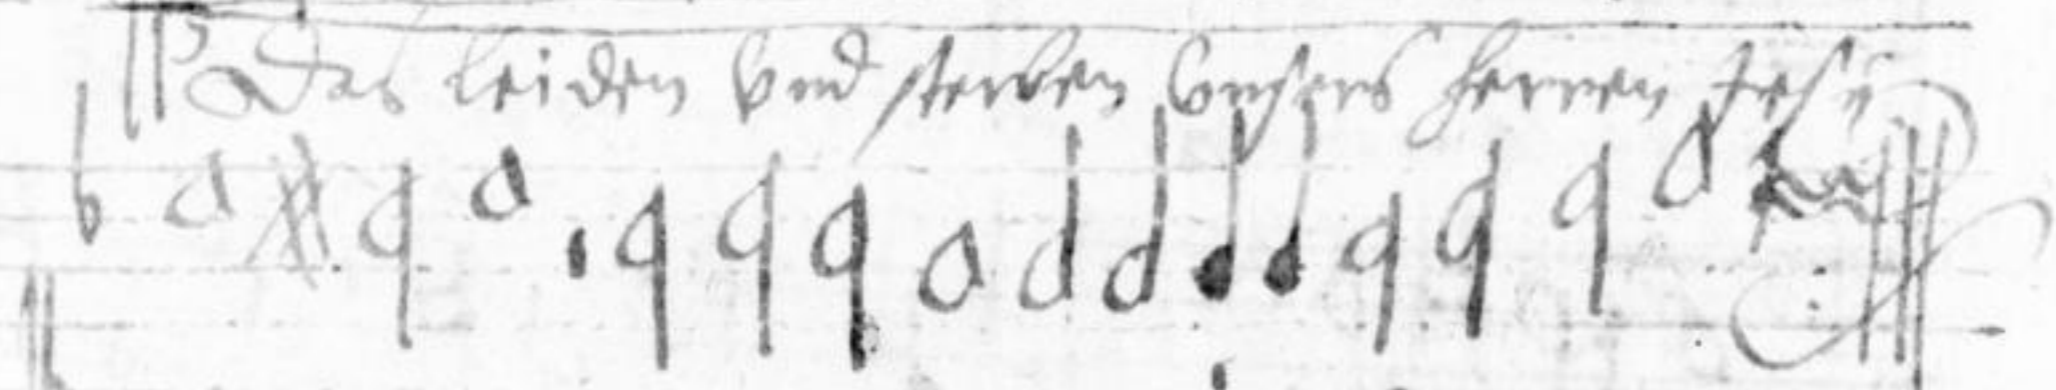 Das leiden vnd sterben vnsers herren Jesu